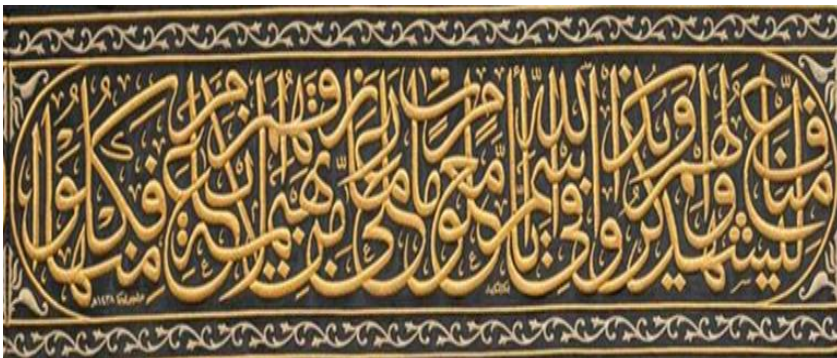 ليشهدوا منافع لهم ويذكروا اسم الله في أيام معلومات على ما رزقهم من بهيمة الأنعام فكلوا منها